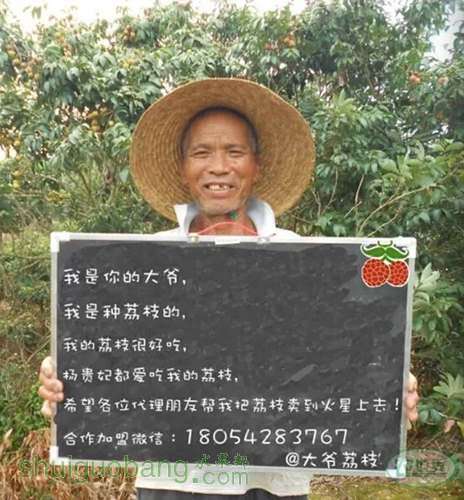 我是你的大爷,
我是种荔枝的,
我的荔枝很好吃,
杨贵妃都爱吃我的荔枝,
希望各位代理朋友帮我把荔枝卖到火星上去！
合作加盟微信：18054283767
@大爷荔枝
shuiguobang.com
水果邦